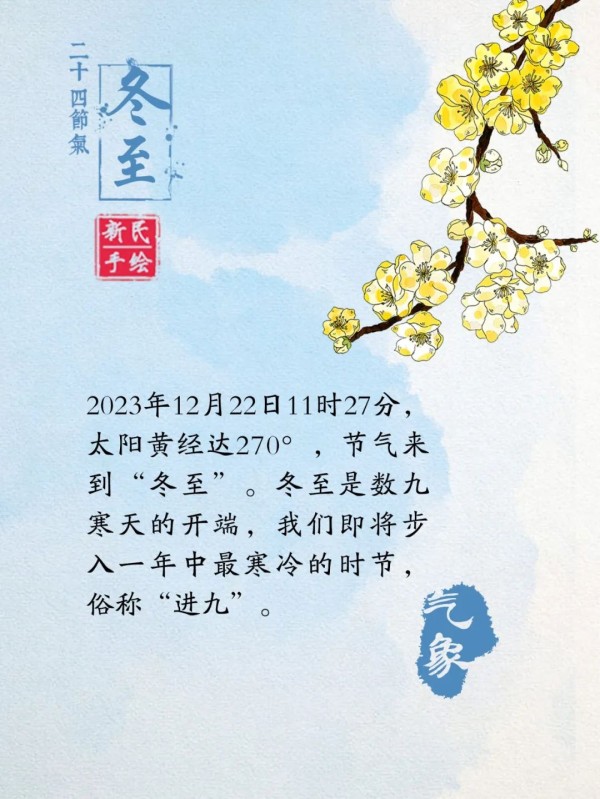 二十四節氣
冬至
新民
手绘
2023年12月22日11时27分，
太阳黄经达270°，节气来
到“冬至”。冬至是数九
寒天的开端，我们即将步
入一年中最寒冷的时节，
俗称“进九”。
气象